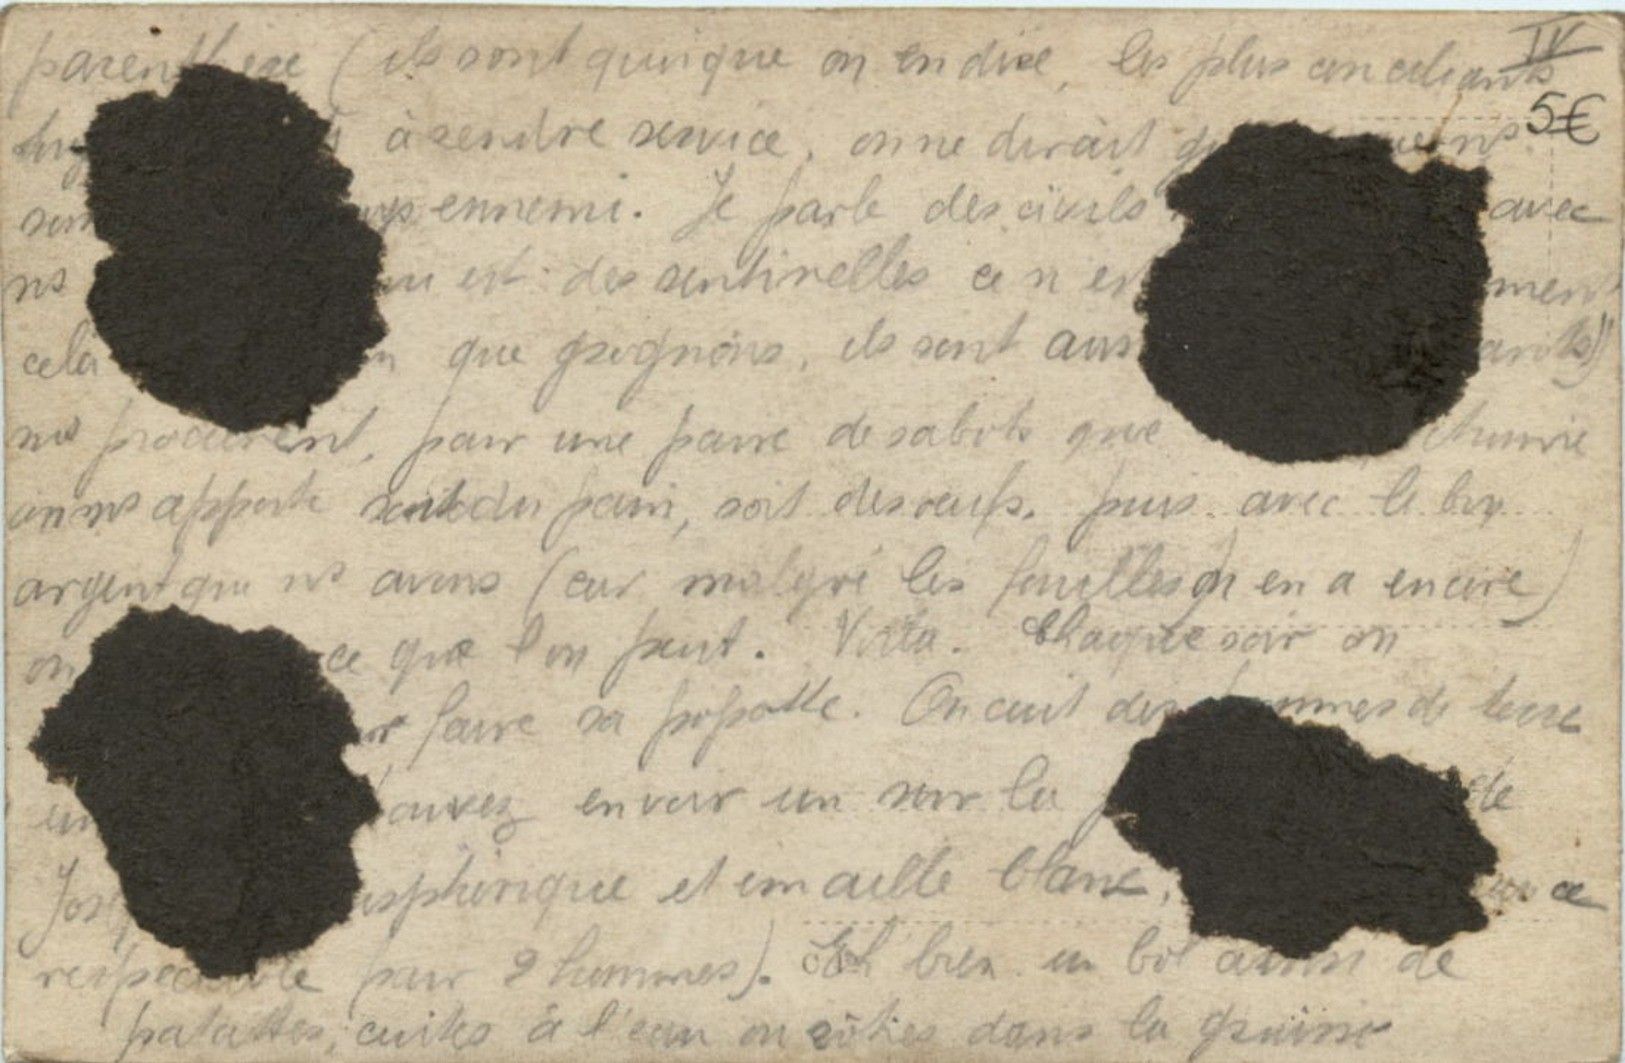 IV
parenthèse (ils sont quoique on en dise, les plus conciliants
5€
à rendre service, on ne dirait
ennemi. Je parle des civils avec
ns est des sentinelles ce n es ment
cela que grognons, ils sont aus
ns procurent, pour une paire de sabots que
on ns apporte soit du pain, soit des oeufs. puis avec le
argent que ns avons (car malgré les fouilles on en a encore)
on ce que l'on peut. Voila. Chaque soir on
faire sa popotte. On cuit des pommes de terre
en voir un sur la de
Jos et em aille blanc, ce
respectable pour 2 hommes). Eh bien un bol de
patattes, cuites à l'eau ou rôties dans la graisse